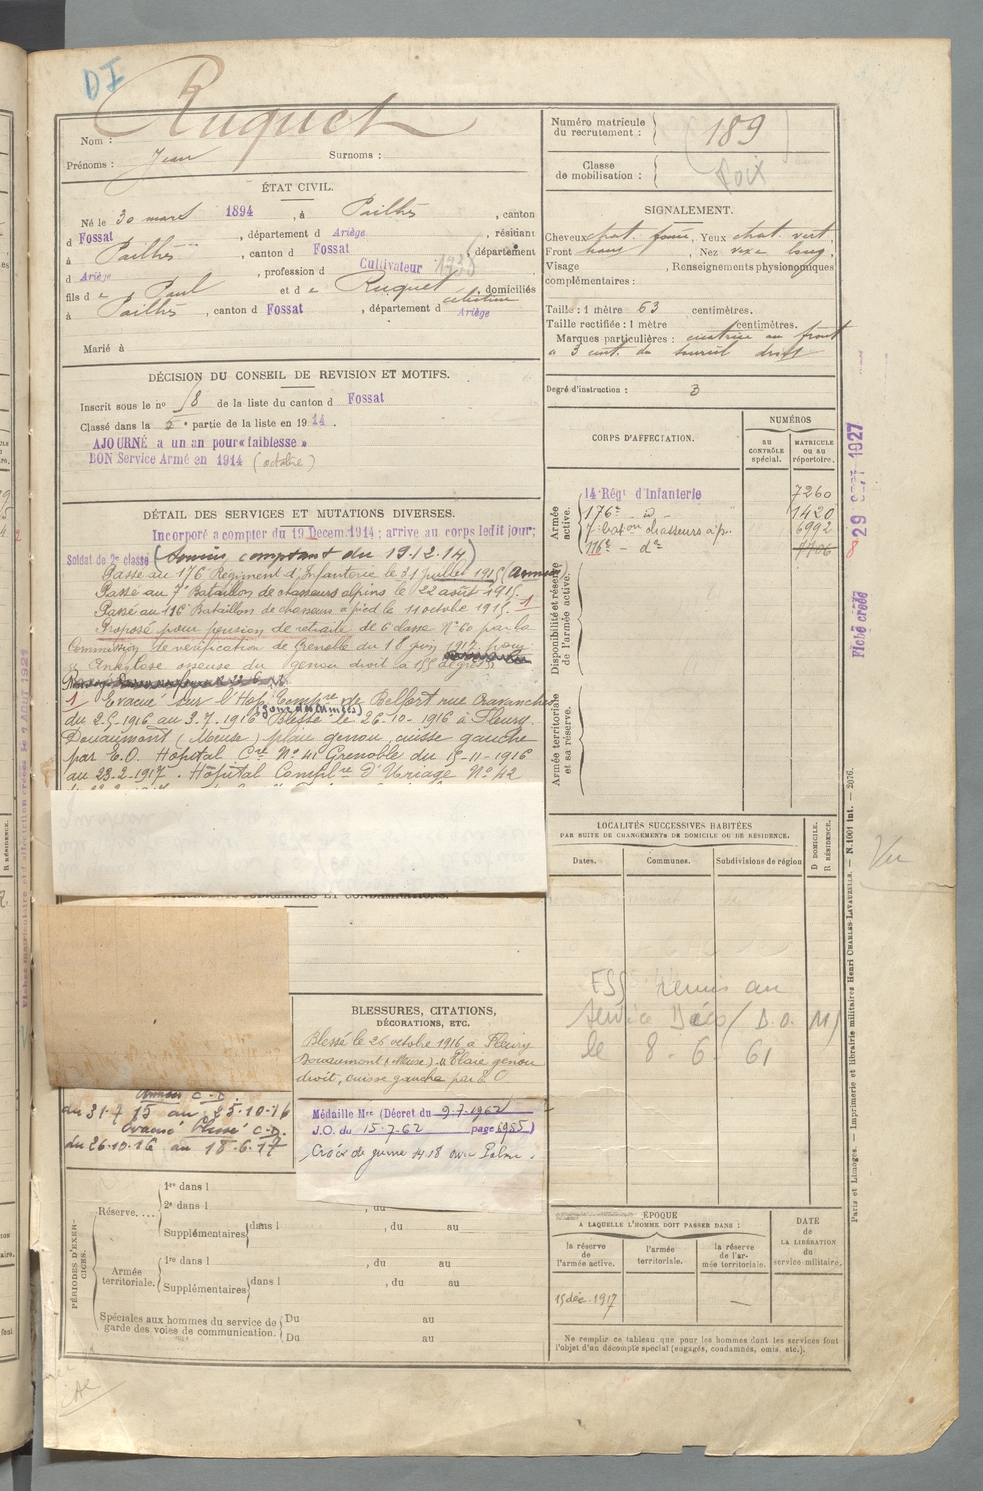 DI
Ruquet
Nom :
Prénoms : Jean Surnoms :
ÉTAT CIVIL.
Né le 30 mars 1894, à Pailhès, canton
d Fossat, département d Ariège, résidant
à Pailhès, canton d Fossat, département
d Ariège, profession d Cultivateur
fils de Paul et de Ruquet célestine, domiciliés
à Pailhès, canton d Fossat, département d Ariège
Marié à
DÉCISION DU CONSEIL DE REVISION ET MOTIFS.
Inscrit sous le no 58 de la liste du canton d Fossat
Classé dans la 5e partie de la liste en 1914.
AJOURNÉ a un an pour « faiblesse »
BON Service Armé en 1914 (octobre)
DÉTAIL DES SERVICES ET MUTATIONS DIVERSES.
Incorporé a compter du 19 Decem. 1914 ; arrive au corps ledit jour;
Soldat de 2e classe (Soumis comptant du 19.12.14)
Passé au 176e Régiment d'Infanterie le 31 juillet 1915
Passé au 7e Bataillon de chasseurs alpins le 22 août 1915.
Passé au 116e Bataillon de chasseurs à pied le 11 octobre 1915. 1
Proposé pour pension de retraite de 6e classe No 60 par la
Commission de vérification de Grenoble du 18 juin 1917 pour
Ankylose osseuse du genou droit à 155 degrés
1 Evacué sur l'Hop. Tempre de Belfort rue
du 2.5.1916 au 3.7.1916 Blessé le 26-10-1916 à Fleury
Douaumont (Meuse) plaie genou, cuisse gauche
par E.O. Hôpital Cre No 41 Grenoble du 15-11-1916
au 23.2.1917. Hôpital Complre D'Uriage No 42
BLESSURES, CITATIONS,
DÉCORATIONS, ETC.
Blessé le 26 octobre 1916 à Fleury
Douaumont (Meuse) Plaie genou
droit, cuisse gauche par E.O.
Médaille Mre (Décret du 9-7-1962
J.O. du 15-7-62 page 6955)
Croix de guerre 14.18 avec Palme.
Armées C.D.
du 31-7 15 au 25-10-16
Evacué Blessé C.D.
du 26.10.16 au 18-6.17
PÉRIODES D'EXERCICES.
Réserve....
1re dans l
2e dans l , du
Supplémentaires dans l , du au
Armée territoriale.
1re dans l , du au
Supplémentaires dans l , du au
Spéciales aux hommes du service de garde des voies de communication.
Du au
Du au
Numéro matricule du recrutement : 189
Classe de mobilisation : Foix
SIGNALEMENT.
Cheveux chat. foncé, Yeux chat. vert,
Front haut, Nez vexe long,
Visage , Renseignements physionomiques
complémentaires :
Taille : 1 mètre 63 centimètres.
Taille rectifiée : 1 mètre centimètres.
Marques particulières : cicatrice au front
à 3 cent. du sourcil droit
Degré d'instruction : 3
CORPS D'AFFECTATION.
NUMÉROS
au CONTRÔLE spécial.
MATRICULE ou au répertoire.
Armée active.
14e Régt d'Infanterie 7260
176e - d° - 1420
7e baton chasseurs à p. 6992
116e - d° 1706
Disponibilité et réserve de l'armée active.
Armée territoriale et sa réserve.
LOCALITÉS SUCCESSIVES HABITÉES
PAR SUITE DE CHANGEMENTS DE DOMICILE OU DE RÉSIDENCE.
Dates.
Communes.
Subdivisions de région
D DOMICILE. R RÉSIDENCE.
ESS remis au
Service Déco/ D.O. M/
le 8-6-61
ÉPOQUE
A LAQUELLE L'HOMME DOIT PASSER DANS :
la réserve de l'armée active.
l'armée territoriale.
la réserve de l'armée territoriale.
DATE de LA LIBÉRATION du service militaire.
15 déc. 1917
—
Ne remplir ce tableau que pour les hommes dont les services font
l'objet d'un décompte spécial (engagés, condamnés, omis, etc.).
Fiche créée 8 29 SEPT 1927
Vu
Paris et Limoges. — Imprimerie et librairie militaires Henri CHARLES-LAVAUZELLE. — N. 1001 int. — 2076.